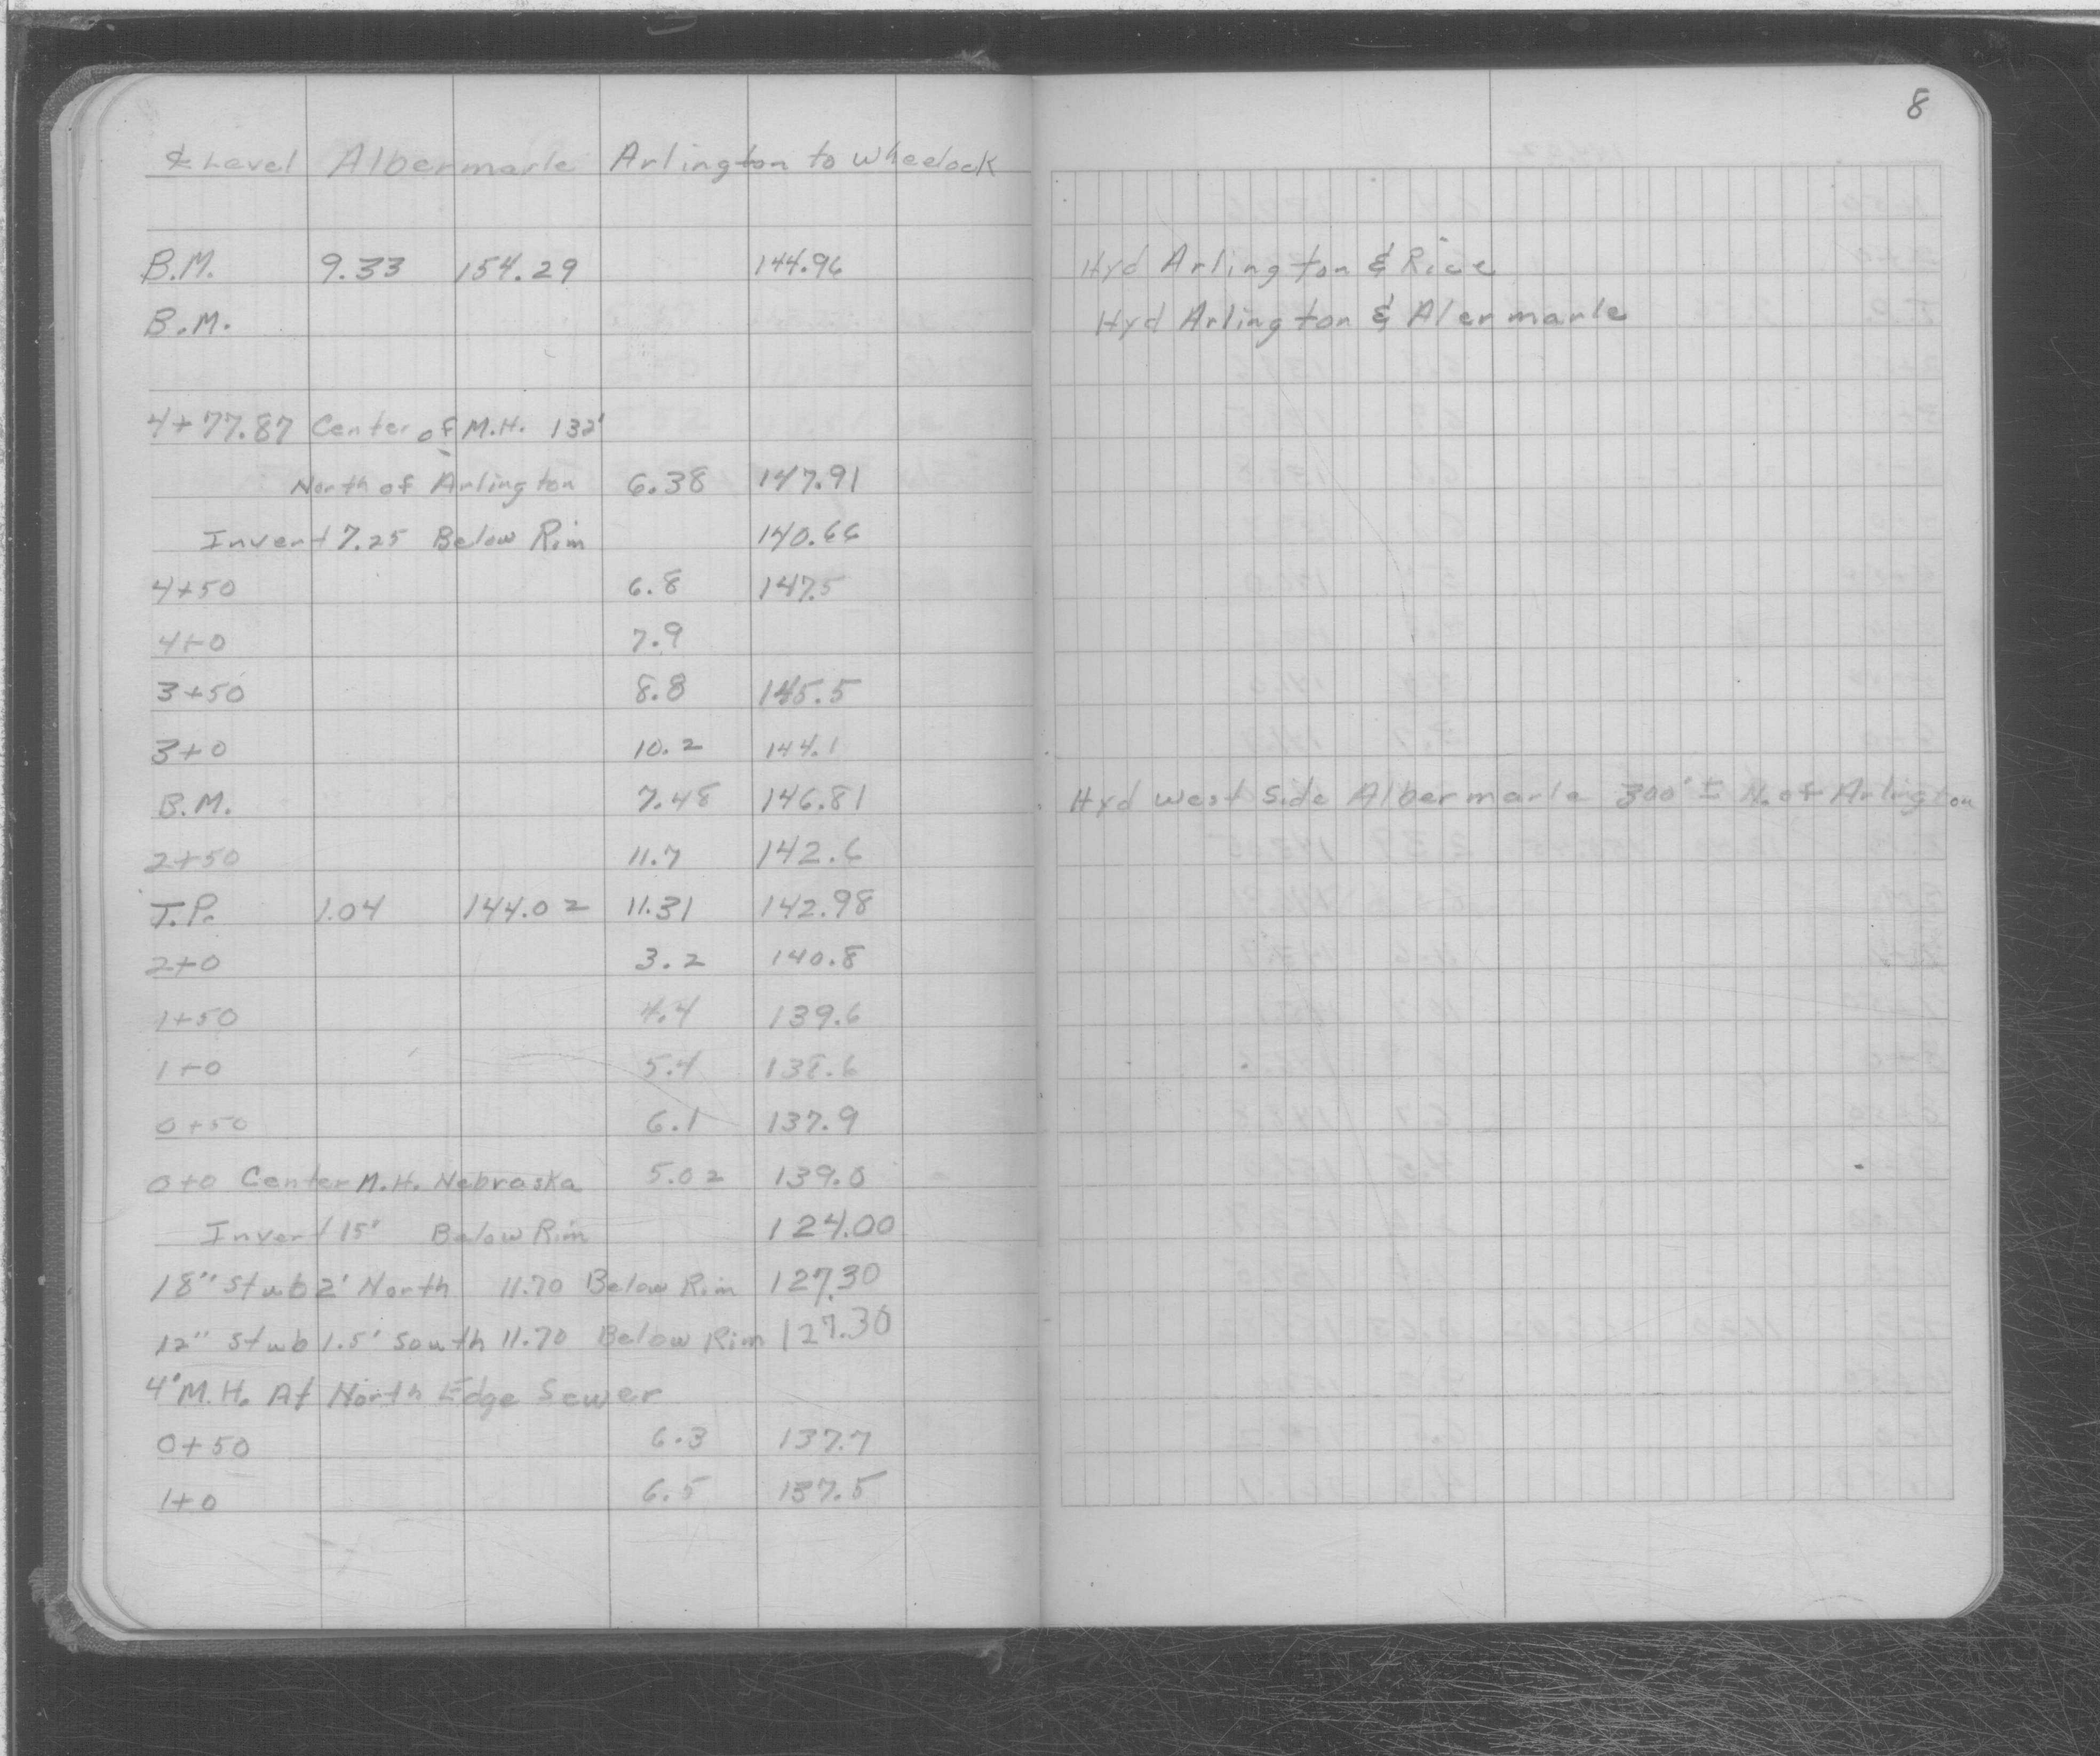 8
℄ Level Albermarle Arlington to Wheelock
B.M. 9.33 154.29 144.96 Hyd Arlington & Rice
B.M. Hyd Arlington & Alermarle
4+77.87 Center of M.H. 132'
North of Arlington 6.38 147.91
Invert 7.25 Below Rim 140.66
4+50 6.8 147.5
4+0 7.9
3+50 8.8 145.5
3+0 10.2 144.1
B.M. 7.48 146.81 Hyd West Side Albermarle 300' ± N. of Arlington
2+50 11.7 142.6
T.P. 1.04 144.02 11.31 142.98
2+0 3.2 140.8
1+50 4.4 139.6
1+0 5.4 138.6
0+50 6.1 137.9
0+0 Center M.H. Nebraska 5.02 139.0
Invert 15' Below Rim 124.00
18" Stub 2' North 11.70 Below Rim 127.30
12" Stub 1.5' South 11.70 Below Rim 127.30
4' M.H. At North Edge Sewer
0+50 6.3 137.7
1+0 6.5 137.5